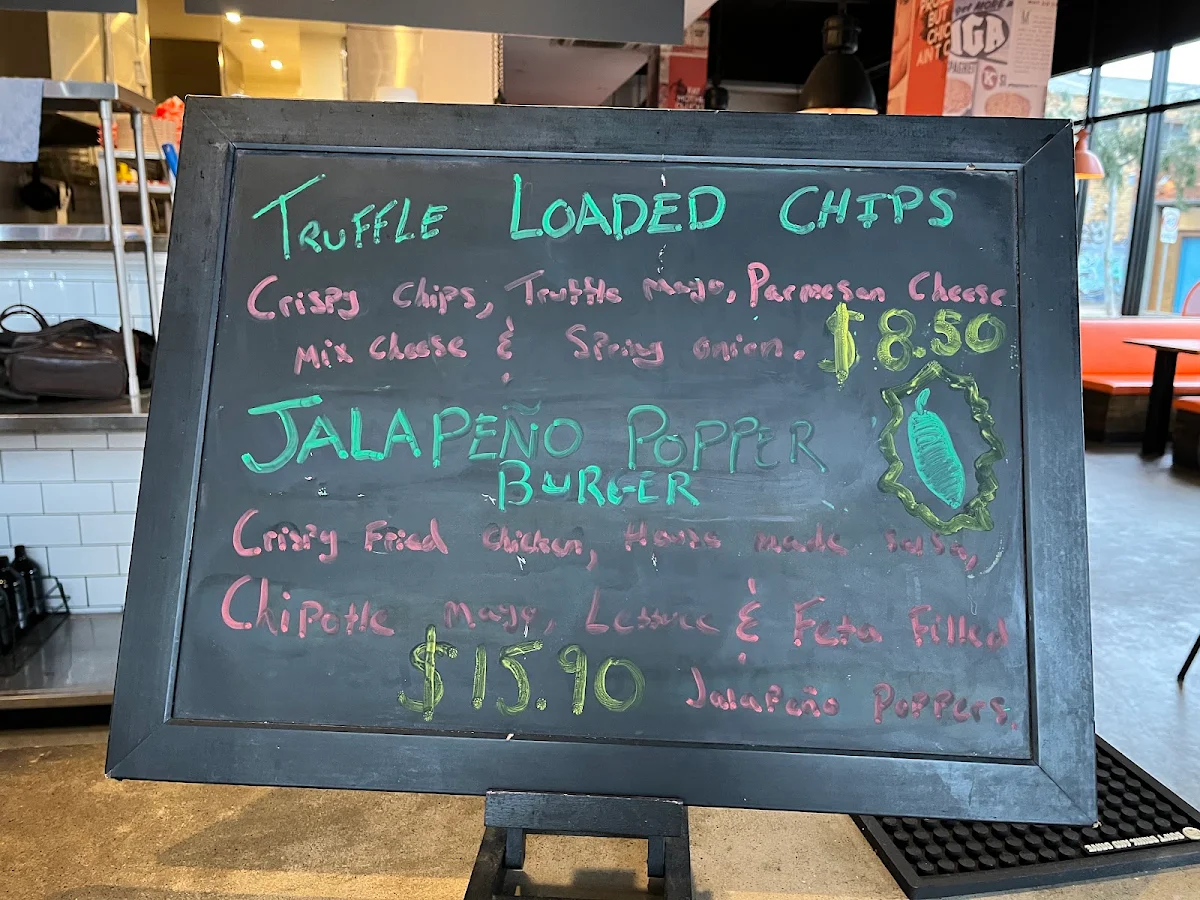 TRUFFLE LOADED CHIPS
Crispy Chips, Truffle Mayo, Parmesan Cheese
Mix Cheese & Spring onion. $8.50
JALAPEÑO POPPER
BURGER
Crispy Fried chicken, House made salsa,
Chipotle Mayo, Lettuce & Feta Filled
$15.90 Jalapeño Poppers.
IGA